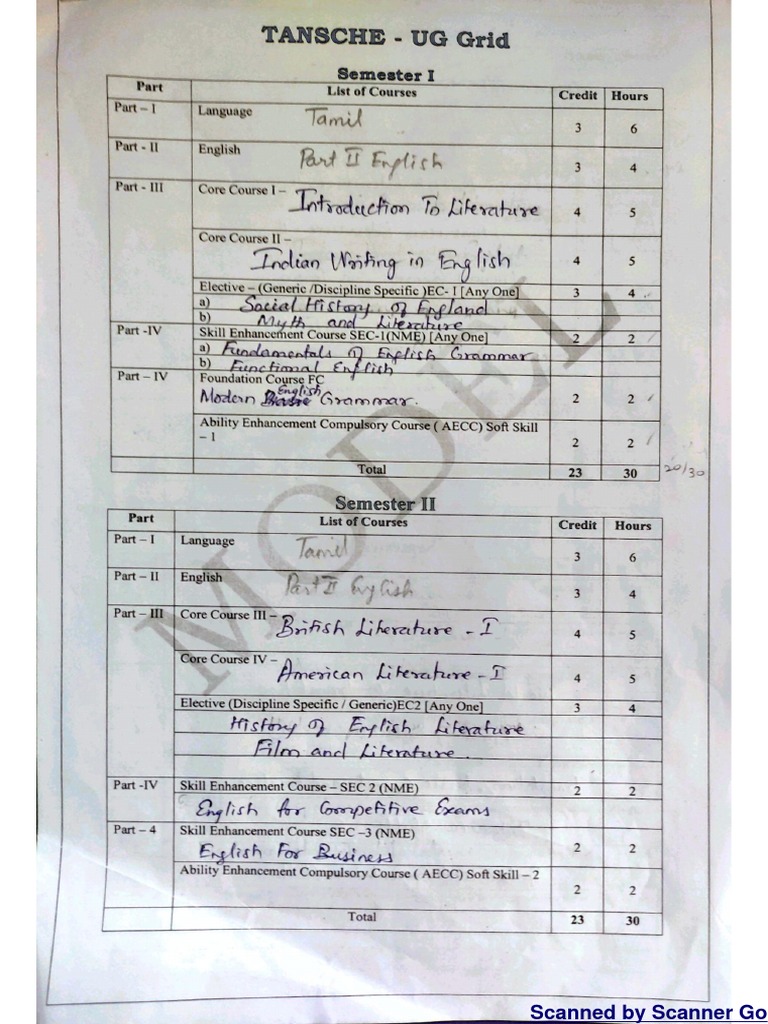 TANSCHE - UG Grid
Semester I
Part List of Courses Credit Hours
Part – I Language Tamil 3 6
Part - II English Part II English 3 4
Part - III Core Course I – Introduction To Literature 4 5
Core Course II – Indian Writing in English 4 5
Elective – (Generic /Discipline Specific )EC- I [Any One] 3 4
a) Social History of England
b) Myth and Literature
Part -IV Skill Enhancement Course SEC-1(NME) [Any One] 2 2
a) Fundamentals of English Grammar
b) Functional English
Part – IV Foundation Course FC
Modern English Grammar. 2 2
Ability Enhancement Compulsory Course ( AECC) Soft Skill
– 1 2 2
Total 23 30 20/30
Semester II
Part List of Courses Credit Hours
Part – I Language Tamil 3 6
Part – II English Part II English 3 4
Part – III Core Course III – British Literature - I 4 5
Core Course IV – American Literature - I 4 5
Elective (Discipline Specific / Generic)EC2 [Any One] 3 4
History of English Literature
Film and Literature.
Part -IV Skill Enhancement Course – SEC 2 (NME) 2 2
English for Competitive Exams
Part – 4 Skill Enhancement Course SEC –3 (NME)
English For Business 2 2
Ability Enhancement Compulsory Course ( AECC) Soft Skill – 2
2 2
Total 23 30
MODEL
Scanned by Scanner Go